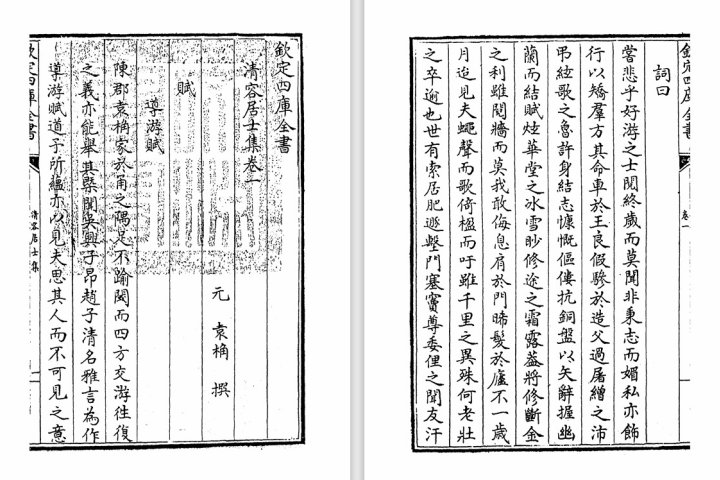 欽定四庫全書
清容居士集卷一
元 袁桷 撰
賦
導游賦
陳郡袁桷家於甬之隅足不踰閾而四方交游往復
之義亦能舉其槩聞吳興子昂趙子清名雅言為作
導游賦道予所蘊亦以見夫思其人而不可見之意
欽定四庫全書
清容居士集
欽定四庫全書
卷一
詞曰
嘗悲乎好游之士閲終歲而莫聞非秉志而媚私亦飾
行以矯羣方其命車於王良假驂於造父過屠繒之沛
弔絃歌之魯許身結志慷慨傴僂抗銅盤以矢辭握幽
蘭而結賦炫華堂之冰雪眇修途之霜露葢將修斷金
之利雖鬩牆而莫我敢侮息肩於門晞髮於廬不一歲
月迨見夫蠅聲而歌倚楹而吁雖千里之異殊何老壯
之卒逾也世有索居肥遯墼門塞竇尊委俚之聞友汗